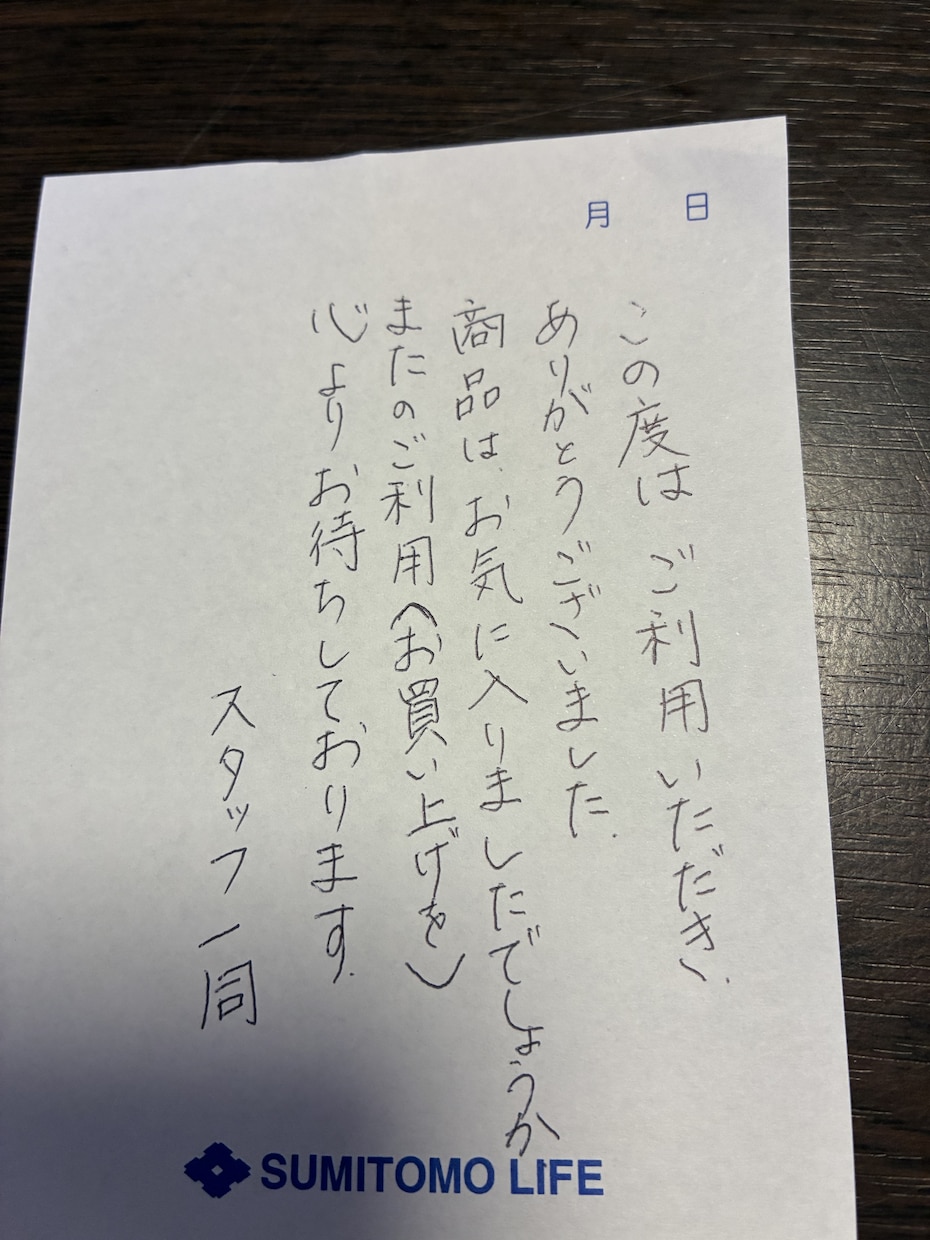 月 日
この度は ご利用いただき、
ありがとうございました.
商品は、お気に入りましたでしょうか
またのご利用(お買い上げを)
心よりお待ちしております.
スタッフ一同
SUMITOMO LIFE